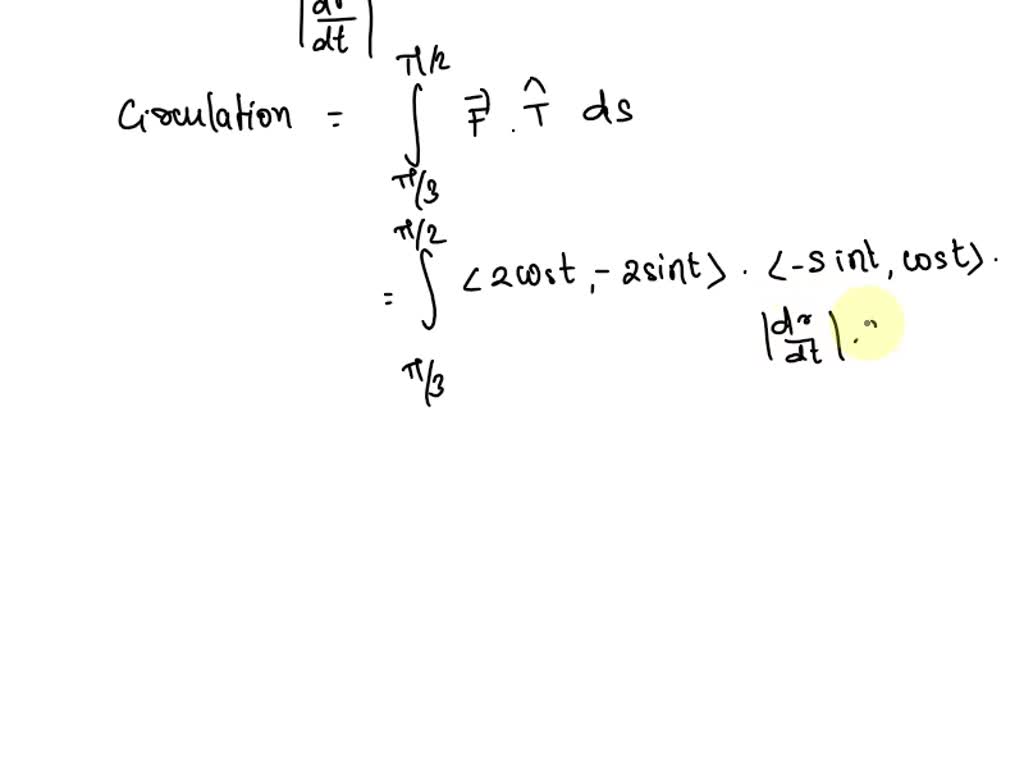 |dr/dt|
Circulation = ∫_{π/3}^{π/2} F⃗ . T̂ ds
= ∫_{π/3}^{π/2} <2cost, -2sint> . <-sint, cost> .
|dr/dt| .